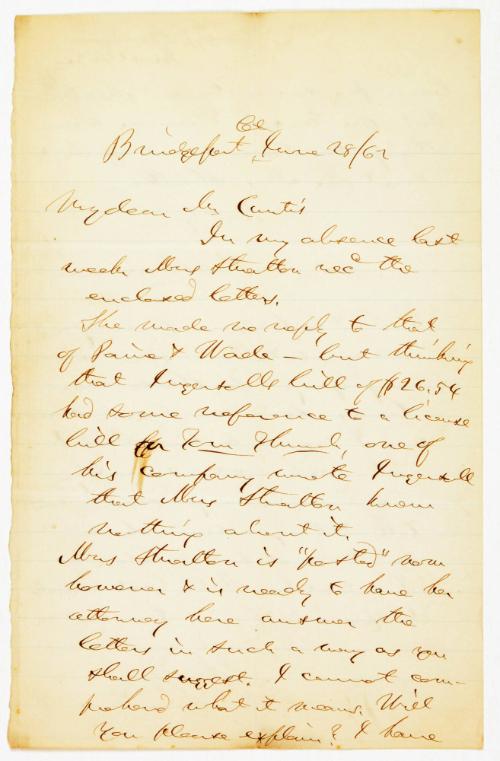 Ct
Bridgeport, June 28/62
My dear Mr Curtis
In my absence last
week Mrs Stratton recd the
enclosed letters.
She made no reply to that
of Paine & Wade - but thinking
that Ingersolls bill of $26.54
had some reference to a license
bill for Tom Thumb, one of
his company wrote Ingersoll
that Mrs Stratton knew
nothing about it.
Mrs Stratton is "posted" now
however & is ready to have her
attorney here answer the
letters in such a way as you
shall suggest. I cannot com-
prehend what it means. Will
you please explain? I have